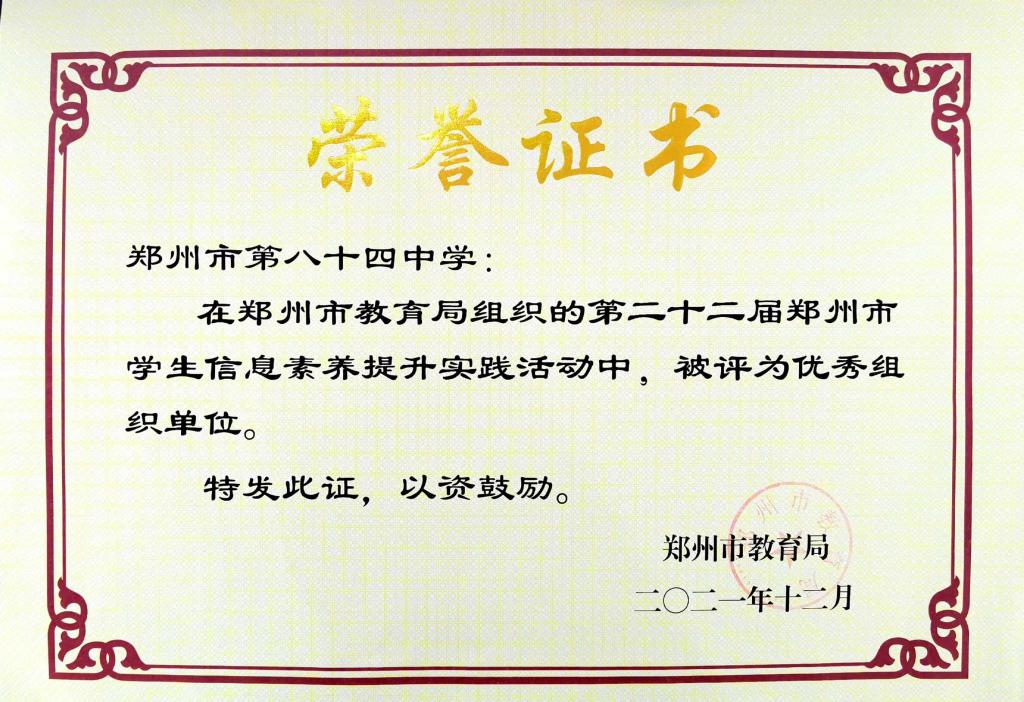 荣誉证书
郑州市第八十四中学：
在郑州市教育局组织的第二十二届郑州市
学生信息素养提升实践活动中，被评为优秀组
织单位。
特发此证，以资鼓励。
郑州市教育局
二〇二一年十二月